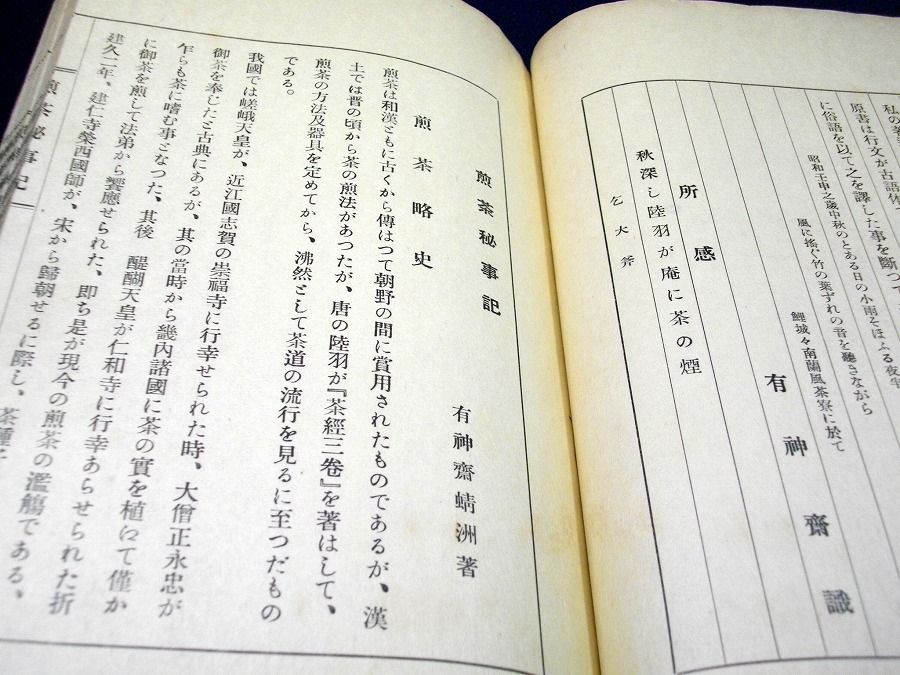 私の著
原書は行文が古語体
に俗語を以て之を譯した事を斷つて
昭和壬申之歲中秋のとある日の小雨そほふる夜半
風に搖ぐ竹の葉ずれの音を聽きながら
鯉城々南蘭風茶寮に於て
有神齋識
所感
秋深し陸羽が庵に茶の煙
乞火斧
煎茶秘事記
有神齋蜻洲著
煎茶略史
煎茶は和漢ともに古くから傳はつて朝野の間に賞用されたものであるが、漢
土では晋の頃から茶の煎法があつたが、唐の陸羽が『茶經三卷』を著はして、
煎茶の方法及器具を定めてから、沸然として茶道の流行を見るに至つだもの
である。
我國では嵯峨天皇が、近江國志賀の崇福寺に行幸せられた時、大僧正永忠が
御茶を奉じたと古典にあるが、其の當時から畿內諸國に茶の實を植ゑて僅か
乍らも茶に嗜む事となつた、其後 醍醐天皇が仁和寺に行幸あらせられた折
に御茶を煎して法弟から饗應せられた、卽ち是が現今の煎茶の濫觴である、
建久二年、建仁寺榮西國師が、宋から歸朝せるに際し、茶種子
煎茶秘事記